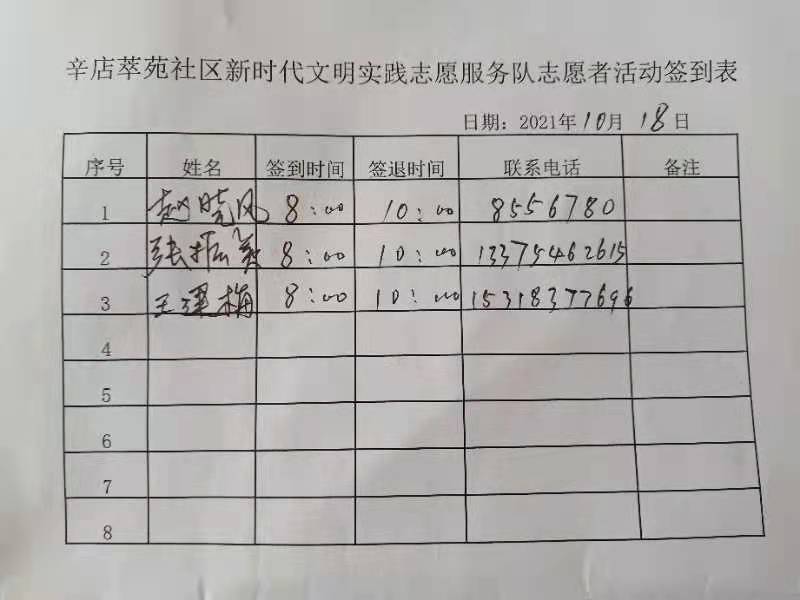 辛店萃苑社区新时代文明实践志愿服务队志愿者活动签到表
日期：2021年10月18日
序号 姓名 签到时间 签退时间 联系电话 备注
1 赵晓风 8:00 10:00 8556780
2 张振 8:00 10:00 13375462615
3 王翠梅 8:00 10:00 15318377696
4
5
6
7
8